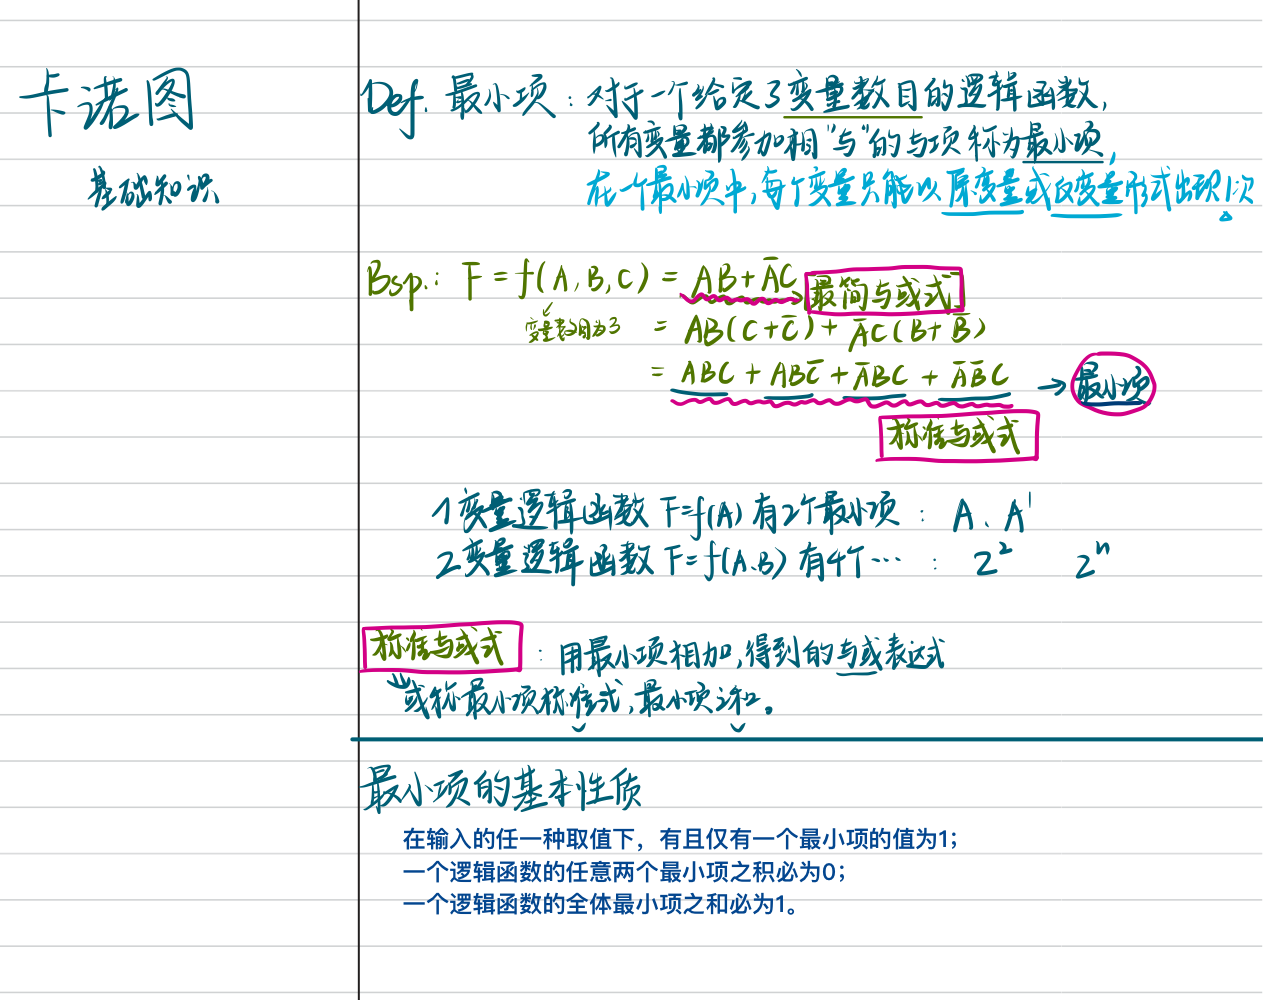 卡诺图
基础知识
Def. 最小项：对于一个给定了变量数目的逻辑函数，
所有变量都参加相"与"的与项称为最小项，
在一个最小项中，每个变量只能以原变量或反变量形式出现1次
Bsp.: F = f(A,B,C) = AB+A̅C 最简与或式
变量数目为3 = AB(C+C̅)+A̅C(B+B̅)
= ABC + ABC̅ + A̅BC + A̅B̅C → 最小项
标准与或式
1变量逻辑函数 F=f(A) 有2个最小项： A、A'
2变量逻辑函数 F=f(A、B) 有4个…： 2² 2ⁿ
标准与或式：用最小项相加，得到的与或表达式
或称最小项标准式，最小项之和。
最小项的基本性质
在输入的任一种取值下，有且仅有一个最小项的值为1；
一个逻辑函数的任意两个最小项之积必为0；
一个逻辑函数的全体最小项之和必为1。